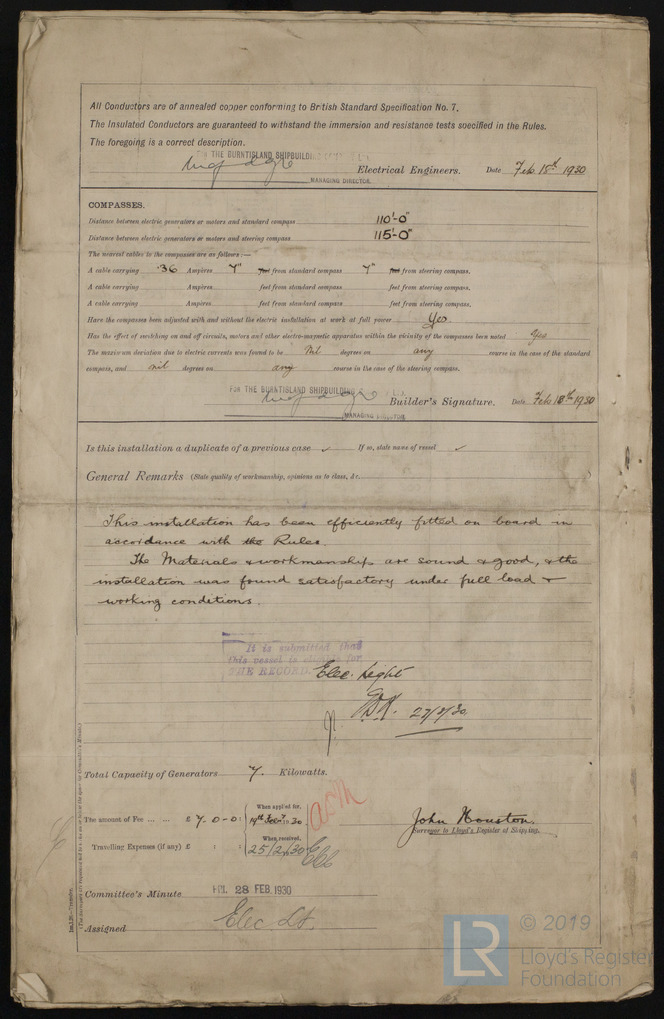 All Conductors are of annealed copper conforming to British Standard Specification No. 7.
The Insulated Conductors are guaranteed to withstand the immersion and resistance tests specified in the Rules.
The foregoing is a correct description.
FOR THE BURNTISLAND SHIPBUILDING
Electrical Engineers. Date Feb. 18th 1930
MANAGING DIRECTOR.
COMPASSES.
Distance between electric generators or motors and standard compass 110'-0"
Distance between electric generators or motors and steering compass 115'-0"
The nearest cables to the compasses are as follows:—
A cable carrying .36 Ampères 7" feet from standard compass 7" feet from steering compass.
A cable carrying Ampères feet from standard compass feet from steering compass.
A cable carrying Ampères feet from standard compass feet from steering compass.
Have the compasses been adjusted with and without the electric installation at work at full power Yes
Has the effect of switching on and off circuits, motors and other electro-magnetic apparatus within the vicinity of the compasses been noted Yes
The maximum deviation due to electric currents was found to be Nil degrees on any course in the case of the standard
compass, and nil degrees on any course in the case of the steering compass.
FOR THE BURNTISLAND SHIPBUILDING
Builder's Signature. Date Feb. 18th 1930
MANAGING DIRECTOR
Is this installation a duplicate of a previous case ✓ If so, state name of vessel ✓
General Remarks (State quality of workmanship, opinions as to class, &c.
This installation has been efficiently fitted on board in
accordance with the Rules.
The Materials & workmanship are sound & good, & the
installation was found satisfactory under full load &
working conditions.
It is submitted that
this vessel is eligible for
THE RECORD. Elec. Light
27/2/30.
Total Capacity of Generators 7. Kilowatts.
The amount of Fee ... ... £ 7. 0-0
When applied for,
When received,
Travelling Expenses (if any) £ 25/2/30
John Houston
Surveyor to Lloyd's Register of Shipping.
Committee's Minute FRI. 28 FEB. 1930
Assigned Elec Lt.
LR © 2019
Lloyd's Register
Foundation